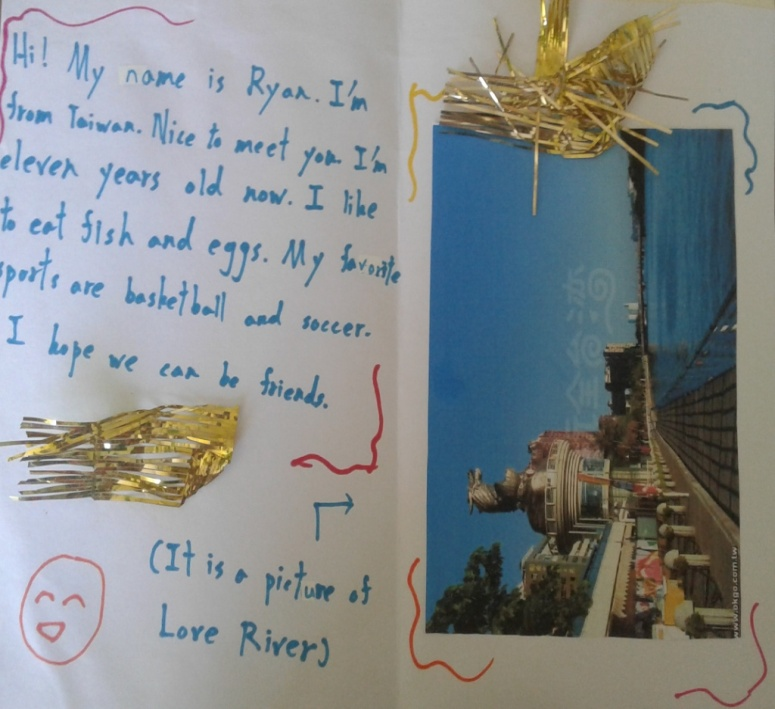 Hi! My name is Ryan. I'm
from Taiwan. Nice to meet you. I'm
eleven years old now. I like
to eat fish and eggs. My favorite
sports are basketball and soccer.
I hope we can be friends.
(It is a picture of
Love River)
全台灣
www.okgo.com.tw